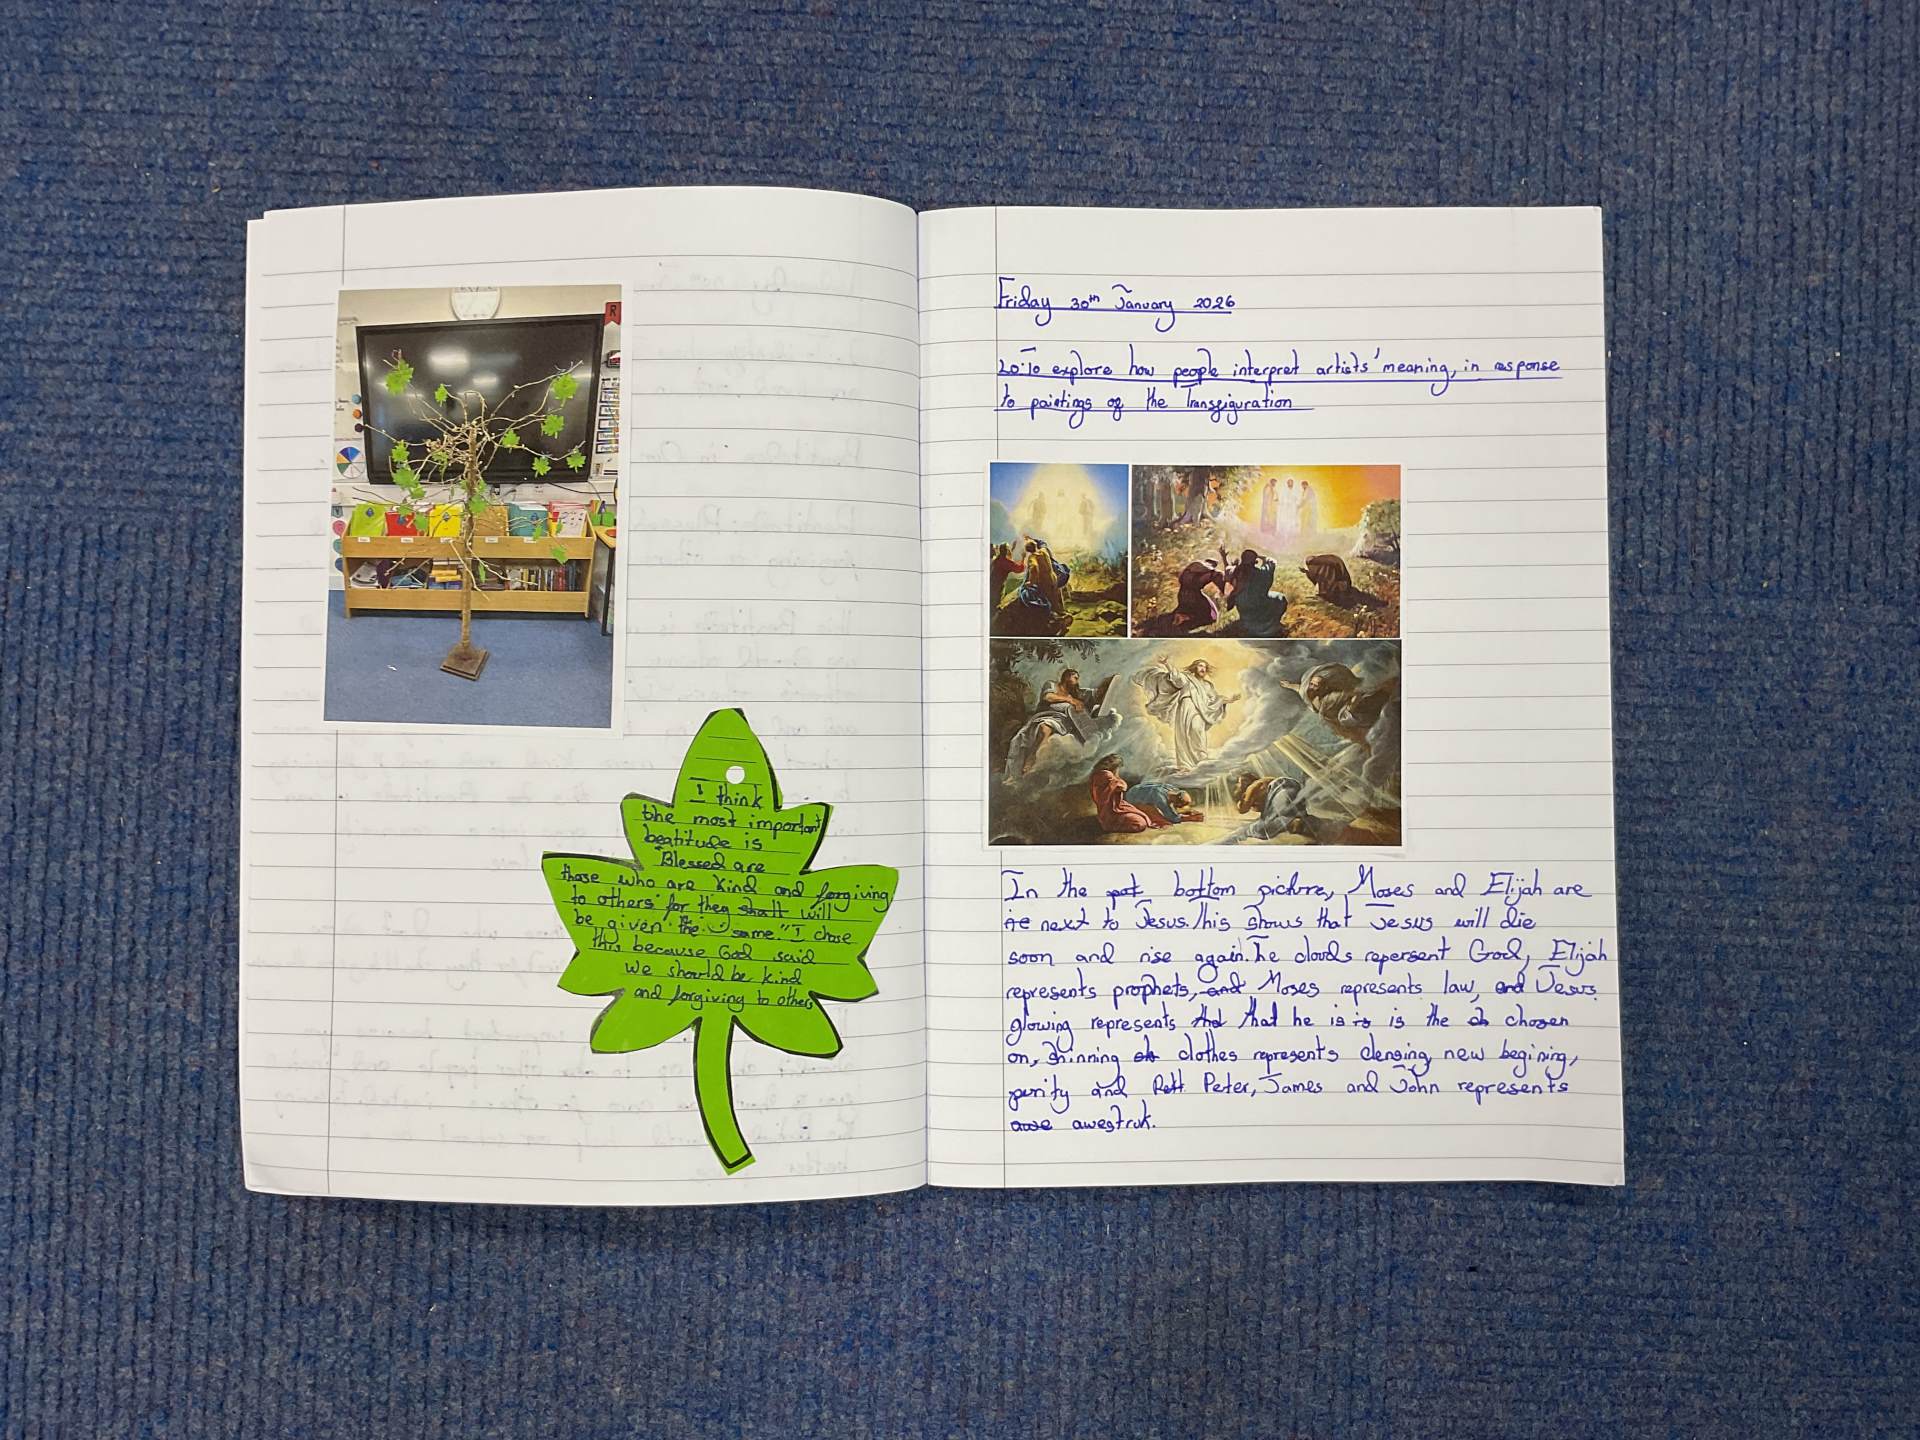 I think
the most important
beatitude is
"Blessed are
those who are kind and forgiving
to others for they shall will
be given the same." I chose
this because God said
we should be kind
and forgiving to others
Friday 30th January 2026
Lo: To explore how people interpret artists' meaning, in response
to paintings of the Transfiguration
In the bottom picture, Moses and Elijah are
next to Jesus. This shows that Jesus will die
soon and rise again. The clouds repersent God, Elijah
represents prophets, and Moses represents law, and Jesus
glowing represents that he is is is the chosen
on, shinning clothes represents clensing, new begining,
purity and Peter, James and John represents
awe awestruk.